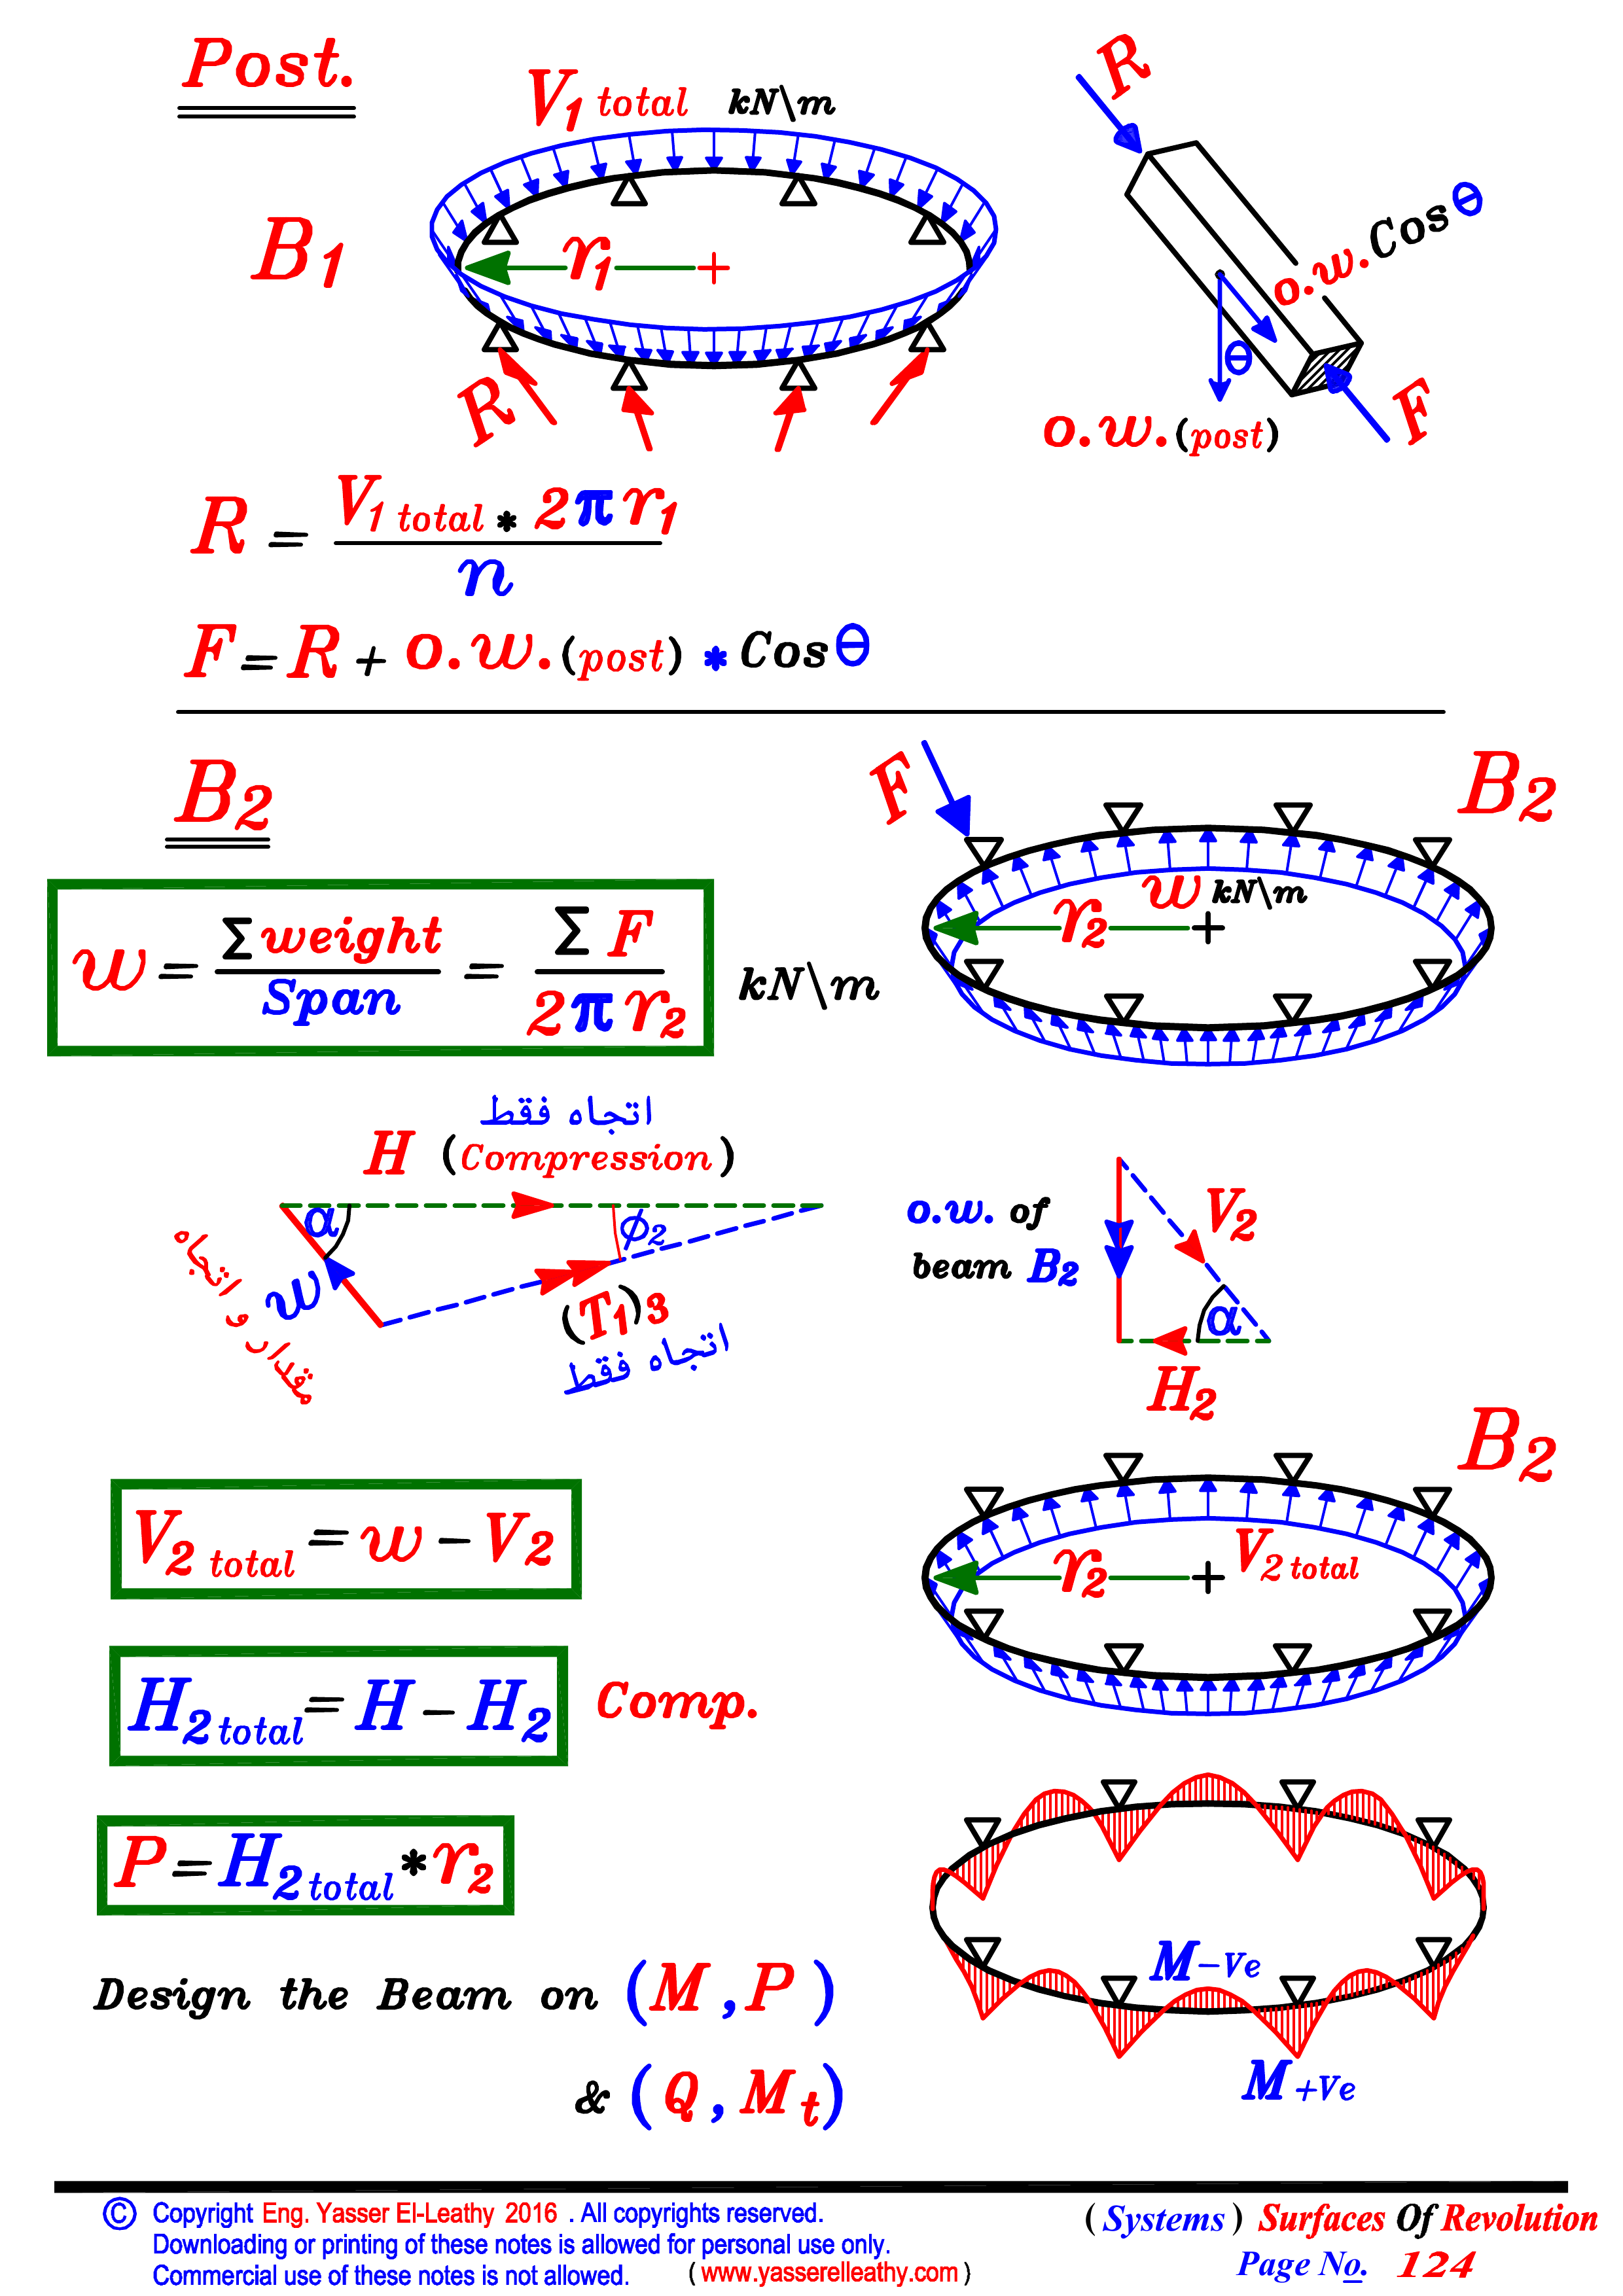 Post.
V1 total kN\m
R
B1
r1
o.w.Cosθ
θ
R
F
o.w.(post)
R = V1 total * 2πr1 / n
F = R + o.w.(post) * Cosθ
B2
F
B2
w kN\m
r2
w = Σweight / Span = ΣF / 2πr2 kN\m
اتجاه فقط
H (Compression)
α
ϕ2
w
مقدار و اتجاه
(T1)3
اتجاه فقط
o.w. of
beam B2
V2
α
H2
B2
V2 total = w - V2
r2
V2 total
H2 total = H - H2 Comp.
P = H2 total * r2
M-Ve
Design the Beam on (M,P)
M+Ve
& (Q,Mt)
© Copyright Eng. Yasser El-Leathy 2016 . All copyrights reserved.
Downloading or printing of these notes is allowed for personal use only.
Commercial use of these notes is not allowed. (www.yasserelleathy.com)
(Systems) Surfaces Of Revolution
Page No. 124